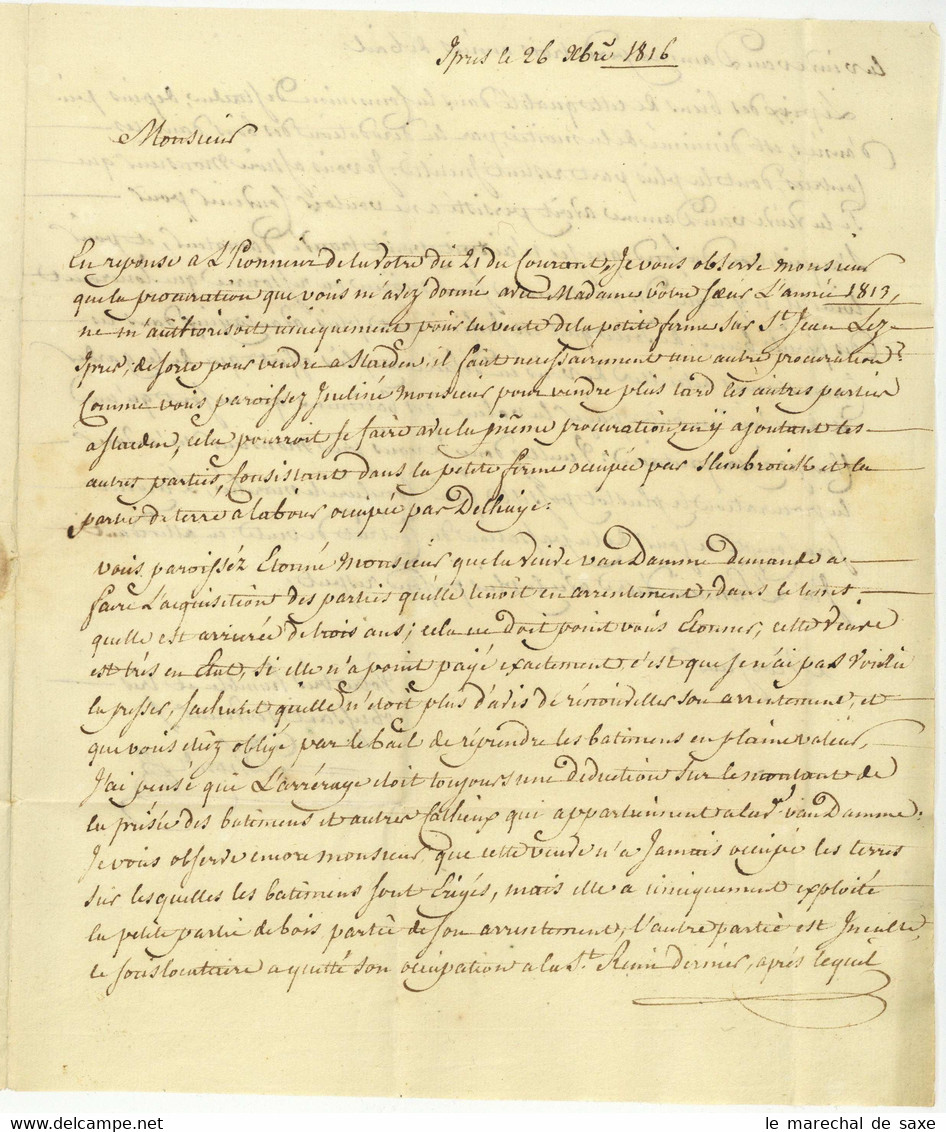 Ipres le 26 Xbre 1816
Monsieur
En reponse a L'honneur de la votre du 21 du Courant, Je vous observe monsieur
que la procuration que vous m'avez donné avec Madame votre Sœur L'année 1813,
ne m'authorisoit uniquement pour la vente de la petite ferme sur St Jean Lez-
Ipres, de sorte pour vendre a Staden, il faut necessairement une autre procuration
Comme vous paroissez Incliné Monsieur pour vendre plus tard les autres parties
a staden, cela pourroit se faire avec la même procuration, en ÿ ajoutant les
autres parties, Consistant dans la petite ferme occupée par et la
partie de terre a labour occupée par Delhaije:
vous paroisséz Etonné Monsieur que la veuve van Damme demande a
faire L'acquisition des parties qu'elle tenoit en arrentement, dans le tems
quelle est arrierée de trois ans; cela ne doit point vous Etonner, cette veuve
est trés en Etat, si elle n'a point payé exactement c'est que je n'ai pas voulu
la presser, sachant qu'elle n'etoit plus d'avis de rénouveller son arrentement, et
que vous etiéz obligé par le bail de réprendre les batimens en plaine valeur,
J'ai pensé que L'arrérage etoit toujours une déduction sur le montant de
la prisée des batimens et autres Catheux qui appartiennent a la ve. van Damme:
Je vous observe encore monsieur, que cette veuve n'a Jamais occupée les terres
sur lesquelles les batimens sont Erigés, mais elle a uniquement exploité
la petite partie de bois partée de son arrentement, l'autre partie est Inculte,
le souslocataire a quitté son occupation a la St. Remi dernier, aprés lequel
le marechal de saxe